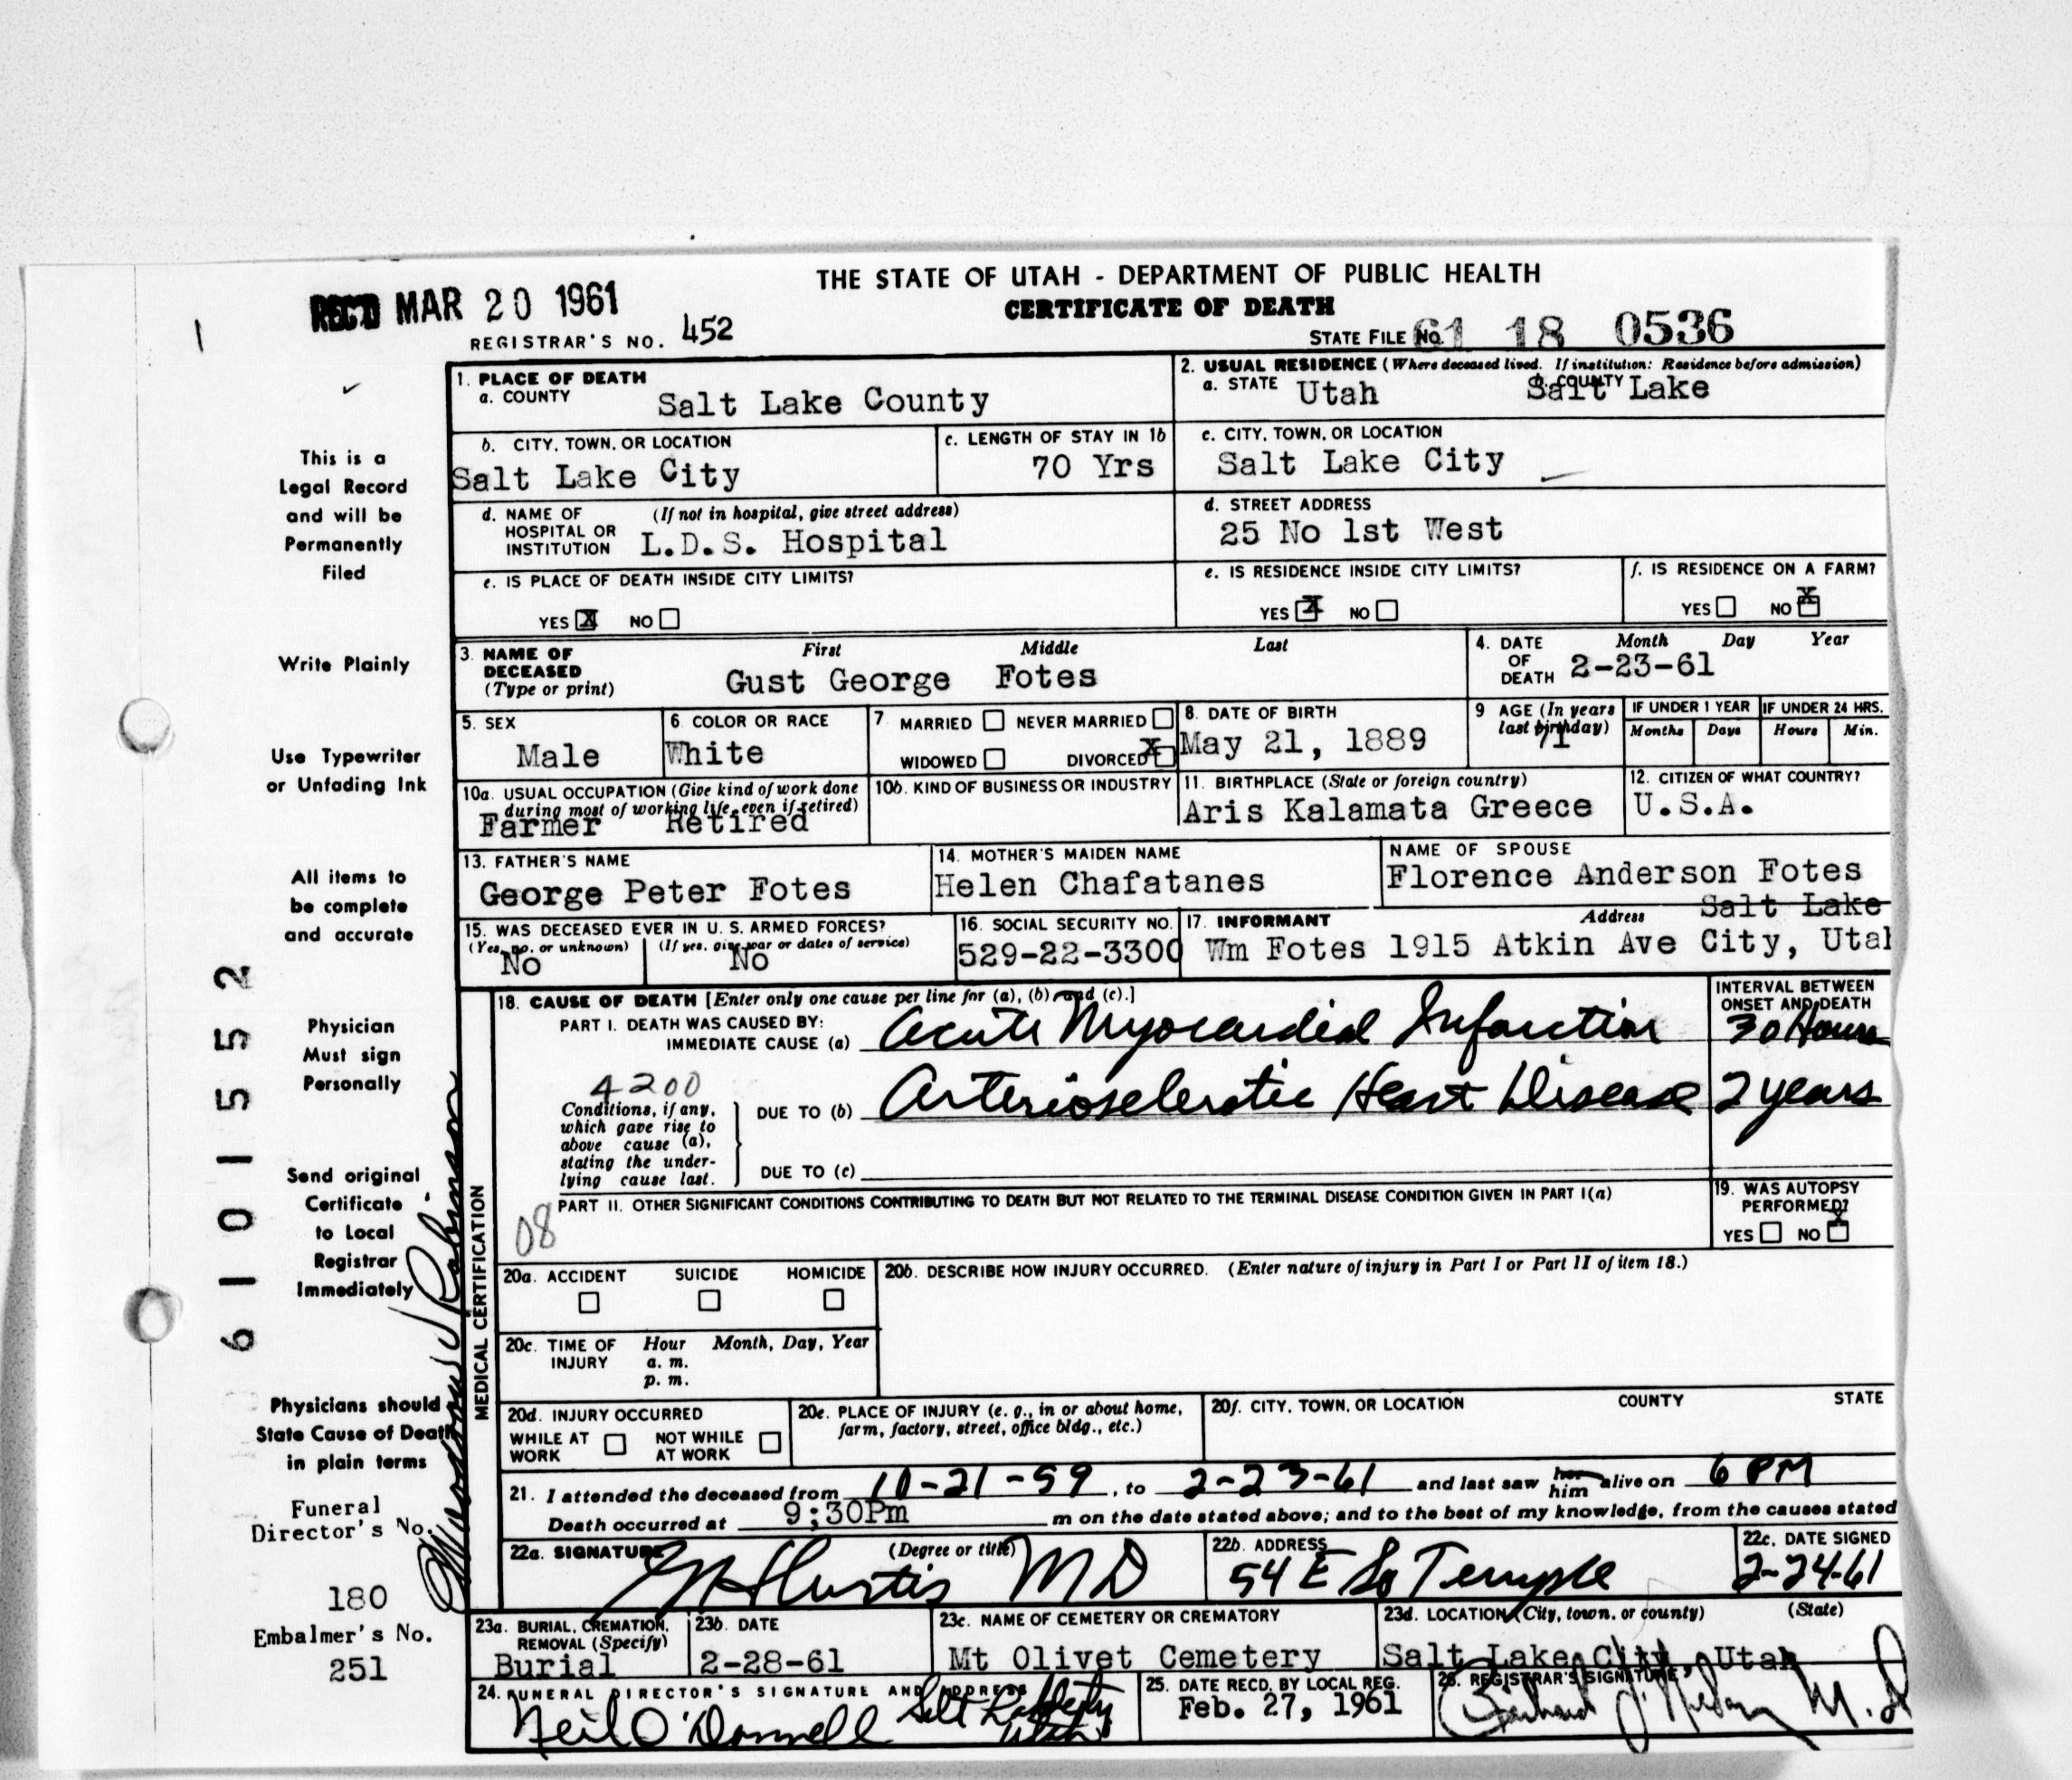 THE STATE OF UTAH - DEPARTMENT OF PUBLIC HEALTH
REC'D MAR 20 1961
CERTIFICATE OF DEATH
REGISTRAR'S NO. 452
STATE FILE No. 61 18 0536
1. PLACE OF DEATH
a. COUNTY Salt Lake County
2. USUAL RESIDENCE (Where deceased lived. If institution: Residence before admission)
a. STATE Utah b. COUNTY Salt Lake
b. CITY, TOWN, OR LOCATION
Salt Lake City
c. LENGTH OF STAY IN 1b
70 Yrs
c. CITY, TOWN, OR LOCATION
Salt Lake City
d. NAME OF (If not in hospital, give street address)
HOSPITAL OR
INSTITUTION L.D.S. Hospital
d. STREET ADDRESS
25 No 1st West
e. IS PLACE OF DEATH INSIDE CITY LIMITS?
YES X NO
e. IS RESIDENCE INSIDE CITY LIMITS?
YES X NO
f. IS RESIDENCE ON A FARM?
YES NO X
3. NAME OF DECEASED (Type or print)
First Middle Last
Gust George Fotes
4. DATE OF DEATH Month Day Year
2-23-61
5. SEX
Male
6. COLOR OR RACE
White
7 MARRIED NEVER MARRIED
WIDOWED DIVORCED X
8. DATE OF BIRTH
May 21, 1889
9 AGE (In years last birthday)
71
IF UNDER 1 YEAR
Months Days
IF UNDER 24 HRS.
Hours Min.
10a. USUAL OCCUPATION (Give kind of work done during most of working life, even if retired)
Farmer Retired
10b. KIND OF BUSINESS OR INDUSTRY
11. BIRTHPLACE (State or foreign country)
Aris Kalamata Greece
12. CITIZEN OF WHAT COUNTRY?
U.S.A.
13. FATHER'S NAME
George Peter Fotes
14. MOTHER'S MAIDEN NAME
Helen Chafatanes
NAME OF SPOUSE
Florence Anderson Fotes
15. WAS DECEASED EVER IN U. S. ARMED FORCES?
(Yes, no, or unknown) (If yes, give war or dates of service)
No No
16. SOCIAL SECURITY NO.
529-22-3300
17. INFORMANT Address Salt Lake
Wm Fotes 1915 Atkin Ave City, Utah
18. CAUSE OF DEATH [Enter only one cause per line for (a), (b) and (c).]
INTERVAL BETWEEN ONSET AND DEATH
PART I. DEATH WAS CAUSED BY:
IMMEDIATE CAUSE (a) Acute Myocardial Infarction 30 Hours
4200
Conditions, if any, which gave rise to above cause (a), stating the underlying cause last.
DUE TO (b) Arteriosclerotic Heart Disease 2 years
DUE TO (c)
PART II. OTHER SIGNIFICANT CONDITIONS CONTRIBUTING TO DEATH BUT NOT RELATED TO THE TERMINAL DISEASE CONDITION GIVEN IN PART I(a)
08
19. WAS AUTOPSY PERFORMED?
YES NO X
20a. ACCIDENT SUICIDE HOMICIDE
20b. DESCRIBE HOW INJURY OCCURRED. (Enter nature of injury in Part I or Part II of item 18.)
20c. TIME OF INJURY Hour Month, Day, Year
a. m.
p. m.
20d. INJURY OCCURRED
WHILE AT WORK NOT WHILE AT WORK
20e. PLACE OF INJURY (e. g., in or about home, farm, factory, street, office bldg., etc.)
20f. CITY, TOWN, OR LOCATION COUNTY STATE
21. I attended the deceased from 10-21-59, to 2-23-61 and last saw her him alive on 6 PM
Death occurred at 9;30Pm m on the date stated above; and to the best of my knowledge, from the causes stated
22a. SIGNATURE (Degree or title)
Curtis MD
22b. ADDRESS
54 E So Temple
22c. DATE SIGNED
2-24-61
23a. BURIAL, CREMATION, REMOVAL (Specify)
Burial
23b. DATE
2-28-61
23c. NAME OF CEMETERY OR CREMATORY
Mt Olivet Cemetery
23d. LOCATION (City, town, or county) (State)
Salt Lake City, Utah
24. FUNERAL DIRECTOR'S SIGNATURE AND ADDRESS
Neil O'Donnell Salt Lake City Utah
25. DATE RECD. BY LOCAL REG.
Feb. 27, 1961
26. REGISTRAR'S SIGNATURE
M.D
MEDICAL CERTIFICATION
This is a
Legal Record
and will be
Permanently
Filed
Write Plainly
Use Typewriter
or Unfading Ink
All items to
be complete
and accurate
Physician
Must sign
Personally
Send original
Certificate
to Local
Registrar
Immediately
Physicians should
State Cause of Death
in plain terms
Funeral
Director's No.
180
Embalmer's No.
251
6101552
Robinson